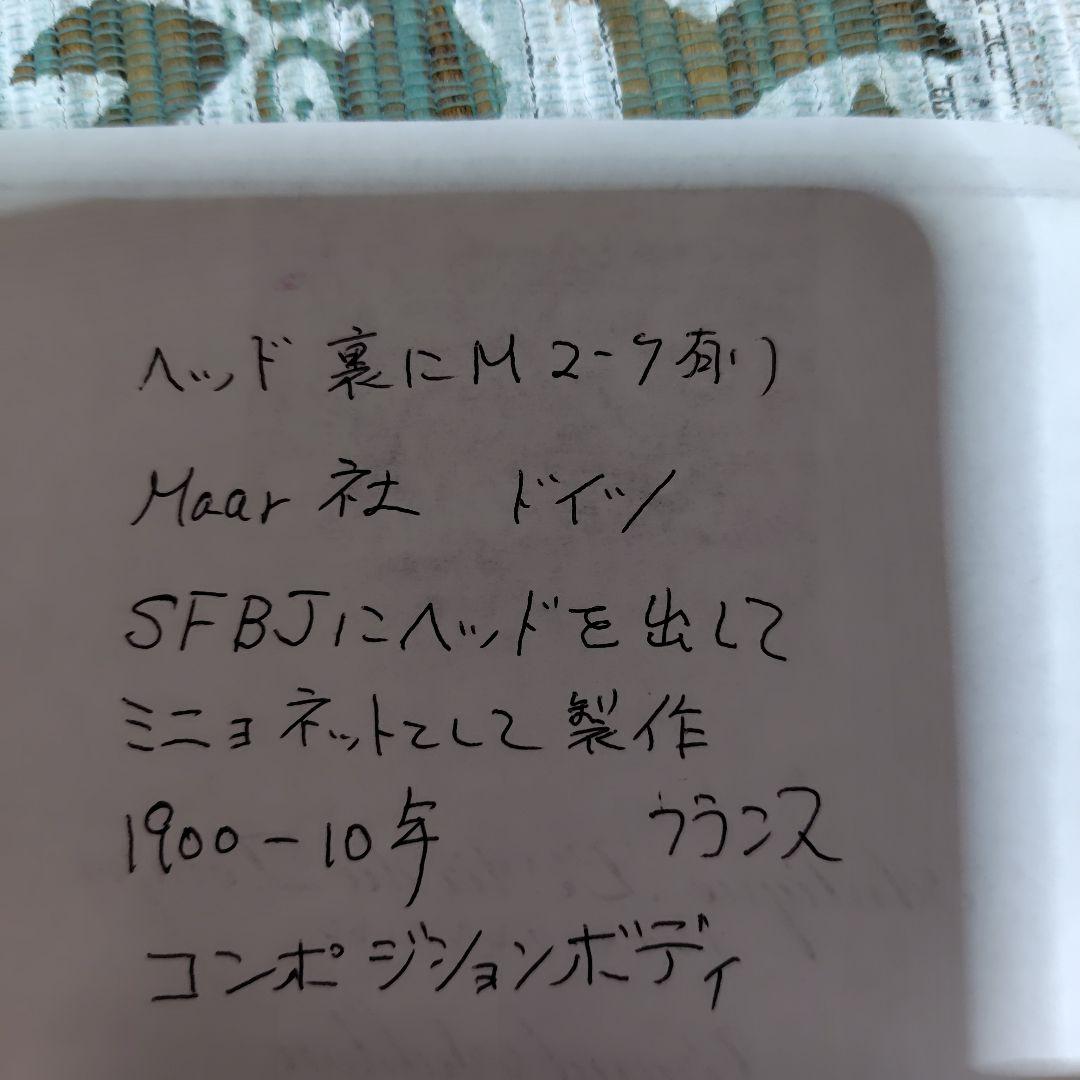 ヘッド裏にM 2-7有り
Maar社 ドイツ
SFBJにヘッドを出して
ミニョネットとして製作
1900-10年 フランス
コンポジションボディ